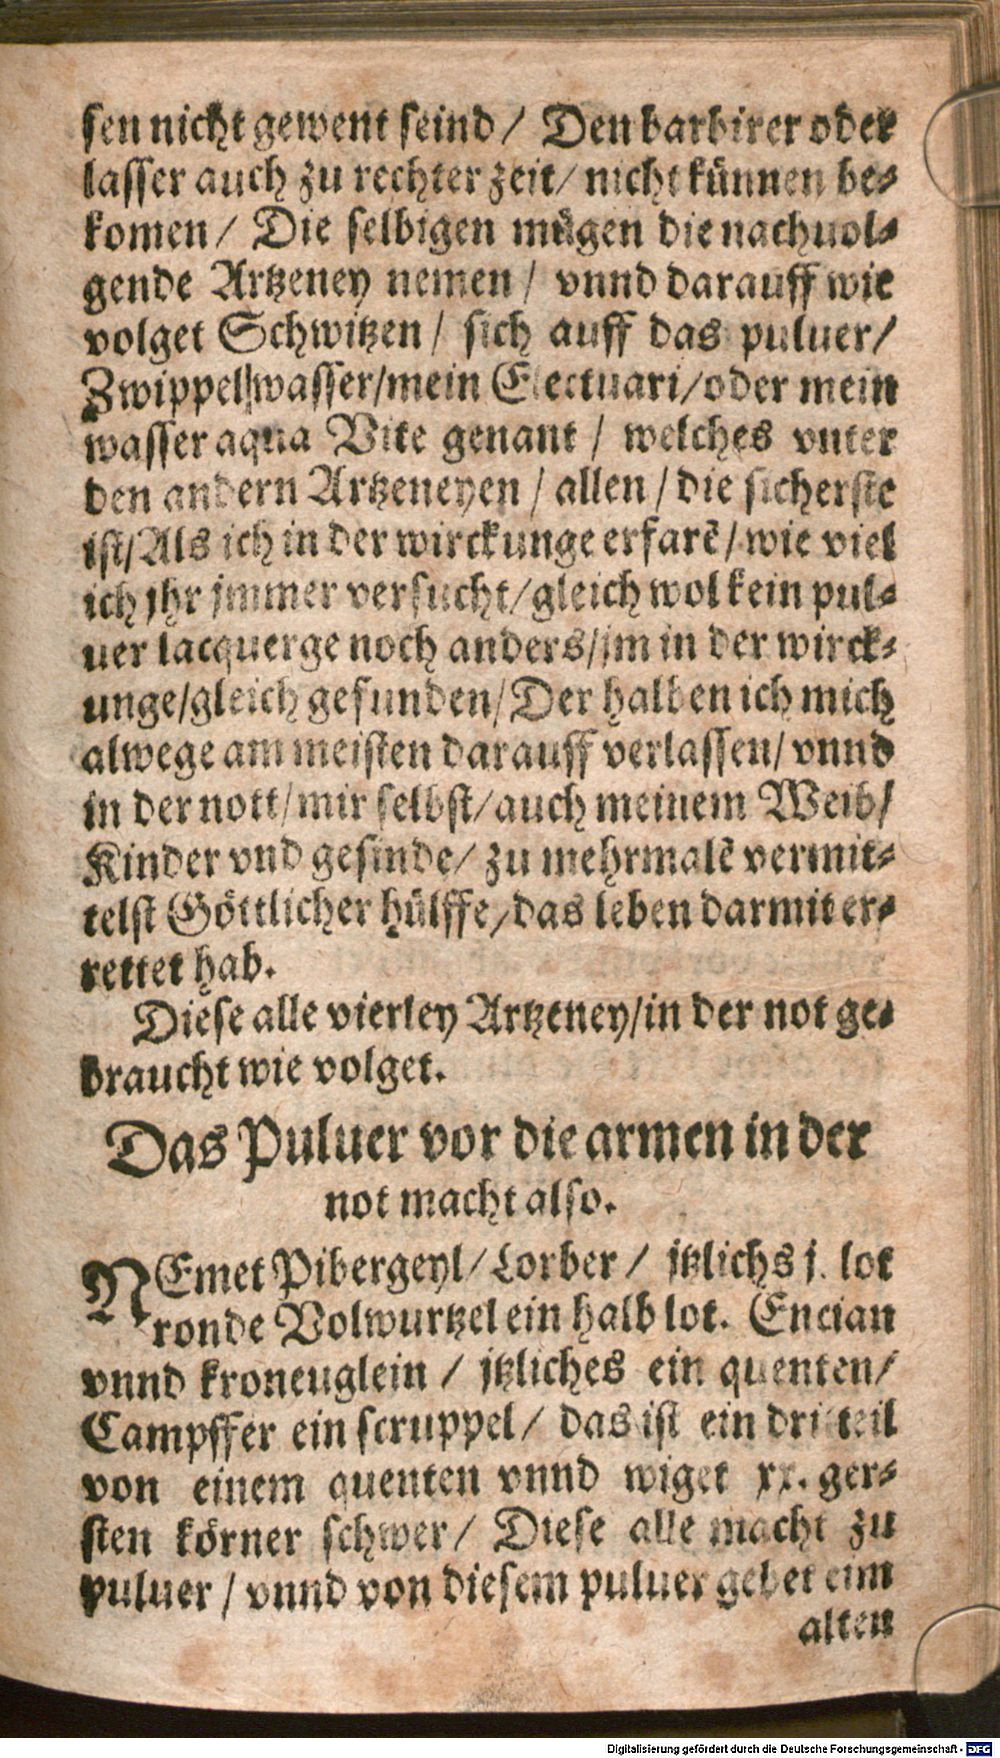 sen nicht gewent seind / Den barbirer oder
lasser auch zu rechter zeit / nicht künnen be⸗
komen / Die selbigen mügen die nachuol⸗
gende Artzeney nemen / vnnd darauff wie
volget Schwitzen / sich auff das puluer /
Zwippelwasser / mein Electuari / oder mein
wasser aqua Vite genant / welches vnter
den andern Artzeneyen / allen / die sicherste
ist / Als ich in der wirckunge erfarē / wie viel
ich jhr jmmer versucht / gleich wol kein pul⸗
uer lacquerge noch anders / jm in der wirck⸗
unge / gleich gefunden / Der halben ich mich
alwege am meisten darauff verlassen / vnnd
in der nott / mir selbst / auch meinem Weib /
Kinder vnd gesinde / zu mehrmalē vermit⸗
telst Göttlicher hülffe / das leben darmit er⸗
rettet hab.
Diese alle vierley Artzeney / in der not ge⸗
braucht wie volget.
Das Puluer vor die armen in der
not macht also.
NEmet Pibergeyl / Lorber / jtzlichs j. lot
ronde Volwurtzel ein halb lot. Encian
vnnd kroneuglein / jtzliches ein quenten /
Campffer ein scruppel / das ist ein dritteil
von einem quenten vnnd wiget xx. ger⸗
sten körner schwer / Diese alle macht zu
puluer / vnnd von diesem puluer gebet eim
alten
Digitalisierung gefördert durch die Deutsche Forschungsgemeinschaft - DFG